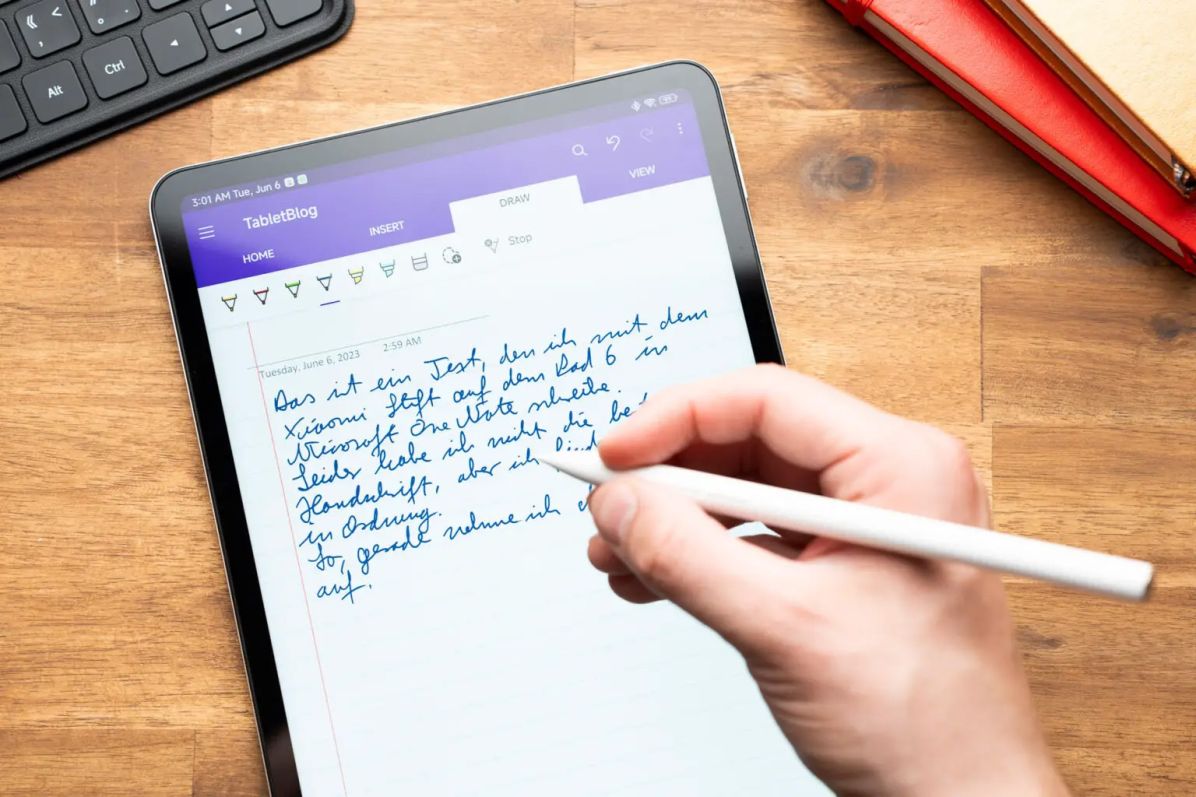 Alt
Ctrl
3:01 AM Tue, Jun 6
TabletBlog
HOME
INSERT
DRAW
VIEW
Stop
Tuesday, June 6, 2023
2:59 AM
Das ist ein Text, den ich mit dem
Xiaomi Stift auf dem Pad 6 in
Microsoft One Note schreibe.
Leider habe ich nicht die
Handschrift, aber ich
in Ordnung.
So, gerade nehme ich
auf.